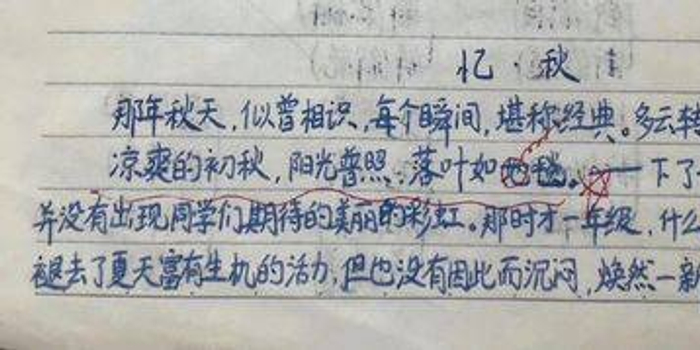 忆秋
那年秋天,似曾相识,每个瞬间,堪称经典。多云转
凉爽的初秋,阳光普照。落叶如地毯。一下了
并没有出现同学们期待的美丽的彩虹。那时才一年级,什么
褪去了夏天富有生机的活力,但也没有因此而沉闷,焕然一新